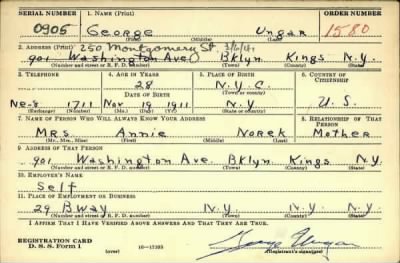 SERIAL NUMBER 1. NAME (Print) ORDER NUMBER
0905 George Ungar 1580
(First) (Middle) (Last)
2. ADDRESS (Print) 250 Montgomery St.
901 Washington Ave. Bklyn Kings N.Y.
(Number and street or R. F. D. number) (Town) (County) (State)
3. TELEPHONE 4. AGE IN YEARS 5. PLACE OF BIRTH 6. COUNTRY OF CITIZENSHIP
28 N.Y.C.
DATE OF BIRTH (Town or county)
Ne-8 1711 Nov 19 1911 N.Y U.S.
(Exchange) (Number) (Mo.) (Day) (Yr.) (State or country)
7. NAME OF PERSON WHO WILL ALWAYS KNOW YOUR ADDRESS 8. RELATIONSHIP OF THAT PERSON
Mrs. Annie Norek Mother
(Mr., Mrs., Miss) (First) (Middle) (Last)
9. ADDRESS OF THAT PERSON
901 Washington Ave. Bklyn Kings N.Y.
(Number and street or R. F. D. number) (Town) (County) (State)
10. EMPLOYER'S NAME
Self
11. PLACE OF EMPLOYMENT OR BUSINESS
29 Bway N.Y. N.Y. N.Y.
(Number and street or R. F. D. number) (Town) (County) (State)
I AFFIRM THAT I HAVE VERIFIED ABOVE ANSWERS AND THAT THEY ARE TRUE.
REGISTRATION CARD
D. S. S. Form 1 (over) 16-17105 George Ungar
(Registrant's signature)